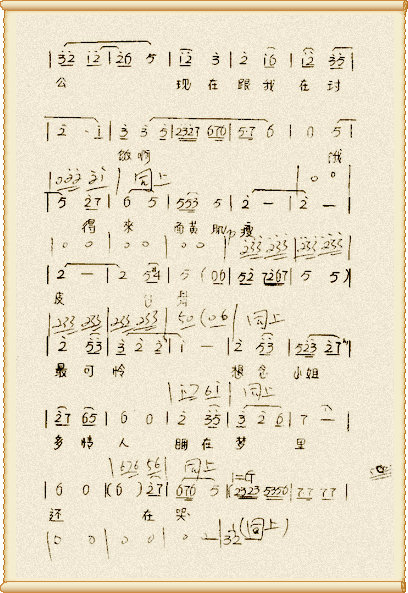 | 32 12 | 26 5 | 12 3 | 2 16 | 12 35 |
公 现 在 跟 我 在 讨
| 2 · 1 | 3 3 5 | 2327 676 | 57 6 | 0 5 |
饭 啊 饿
| 033 31 | 同上 | 0 0
| 5 27 | 6 5 | 553 5 | 2 — | 2 — |
得 来 面黄肌 瘦
| 0 0 | 0 0 | 0 0 | 233 233 | 233 233 |
| 2 — | 2 54 | 5 (06 | 52 7267 | 5 5 ) |
皮 骨
| 233 233 | 233 233 | 50 (06 | 同上
| 2 53 | 3 2 2 | 1 — | 2 53 | 523 27 |
最 可 怜 小 姐
| 同上
| 27 65 | 6 0 | 2 35 | 3 2 6 | 7 — |
多 情 人 睡 在 梦 里
| 626 56 | 同上 1=G
| 6 0 | (6 ) 27 | 676 5 | (2323 5356 | 77 77 |
还 在 哭
| 0 0 | 0 0 | 0 — | 32 (同上)